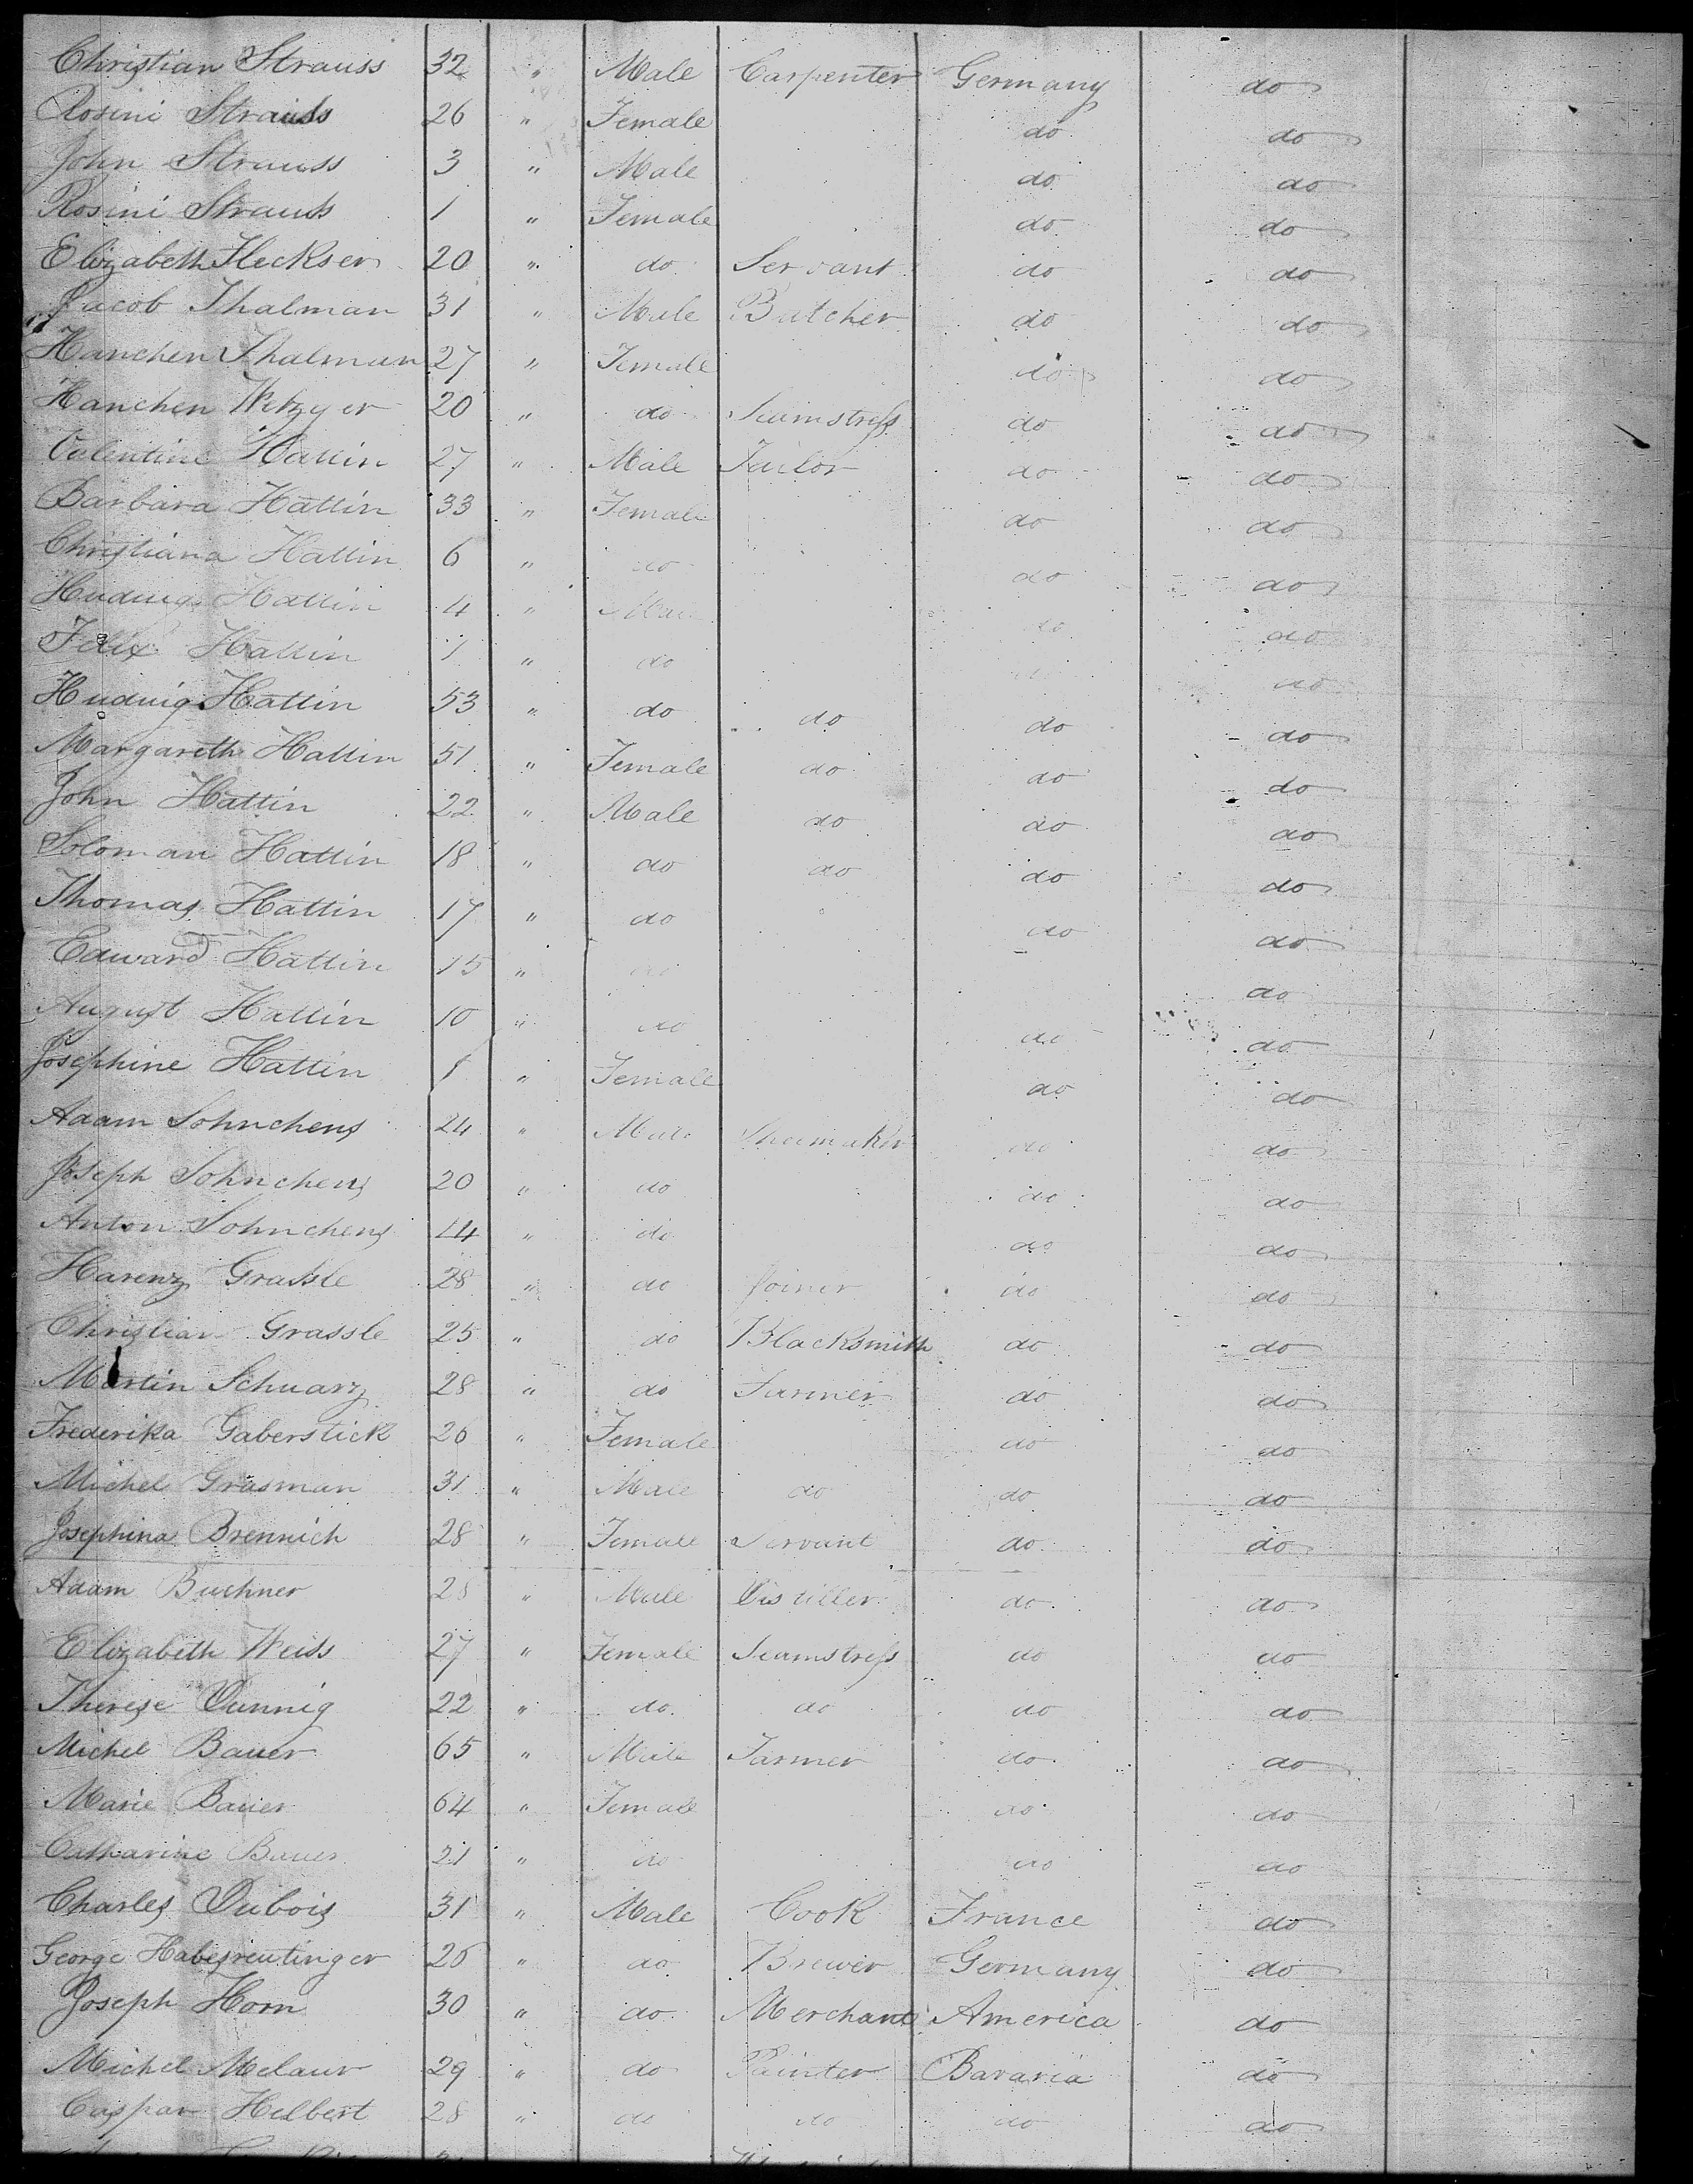 Christian Strauss 32 " Male Carpenter Germany do
Rosini Strauss 26 " Female do do
John Strauss 3 " Male do do
Rosini Strauss 1 " Female do do
Elizabeth Heckser 20 " do Servant do do
Jacob Thalman 31 " Male Butcher do do
Hanchen Thalman 27 " Female do do
Hanchen Wetzger 20 " do Seamstress do do
Valentine Hattin 27 " Male Tailor do do
Barbara Hattin 33 " Female do do
Christiana Hattin 6 " do do do
Huduig Hattin 4 " Male do do
Felix Hattin 1 " do do do
Huduig Hattin 53 " do do do do
Margareth Hattin 51 " Female do do do
John Hattin 22 " Male do do do
Soloman Hattin 18 " do do do do
Thomas Hattin 17 " do do do
Edward Hattin 15 " do do
August Hattin 10 " do do do
Josephine Hattin 1 " Female do do
Adam Sohnchens 24 " Male Shoemaker do do
Joseph Sohnchens 20 " do do do
Anton Sohnchens 14 " do do do
Harenz Grassle 28 " do Joiner do do
Christian Grassle 25 " do Blacksmith do do
Martin Schuarz 28 " do Farmer do do
Frederika Gaberstick 26 " Female do do
Michel Grasman 31 " Male do do do
Josephina Brennich 28 " Female Servant do do
Adam Buchner 28 " Male Distiller do do
Elizabeth Weiss 27 " Female Seamstress do do
Therese Dunnig 22 " do do do do
Michel Bauer 65 " Male Farmer do do
Marie Bauer 64 " Female do do
Catharine Bauer 21 " do do do
Charles Dubois 31 " Male Cook France do
George Habesreutinger 26 " do Brewer Germany do
Joseph Horn 30 " do Merchant America do
Michel Melaur 29 " do Painter Bavaria do
Caspar Helbert 28 " do do do do